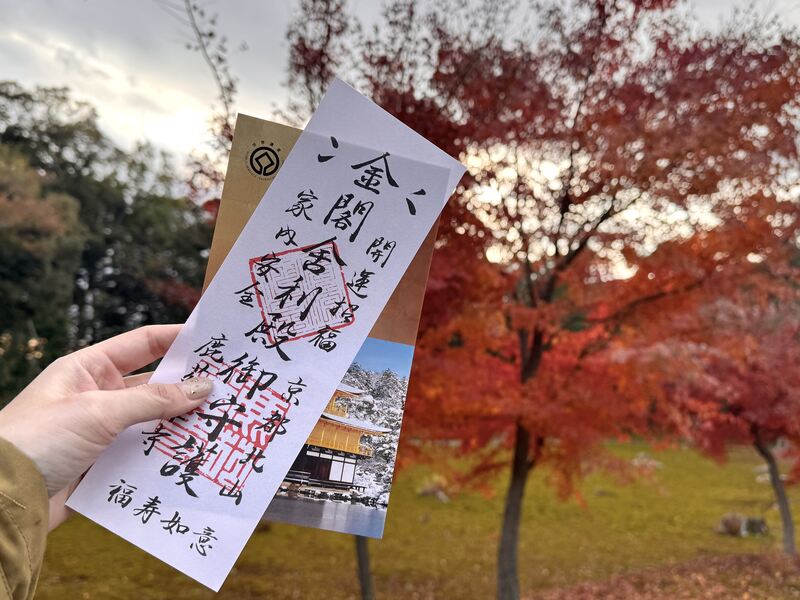 開運招福
金閣舎利殿御守護
家内安全
京都北山
鹿苑寺
福寿如意